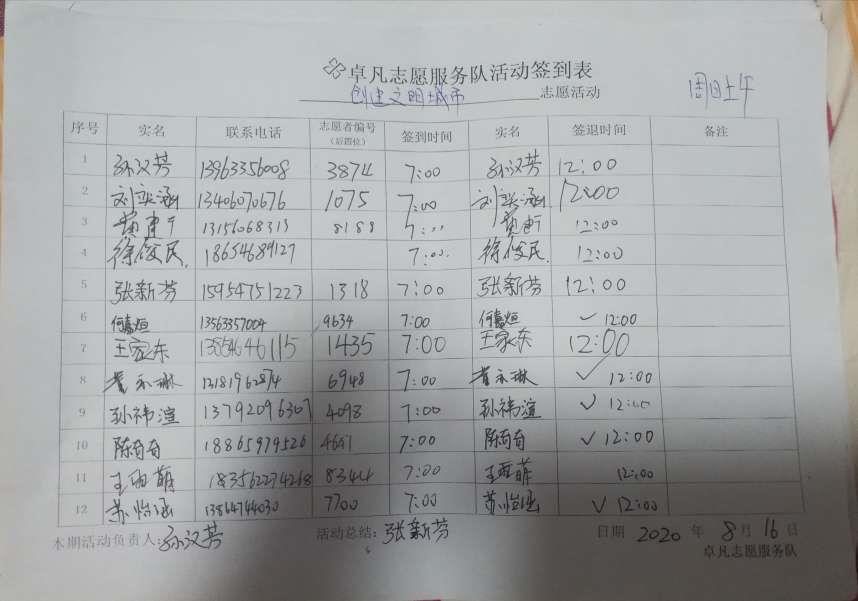 卓凡志愿服务队活动签到表
创建文明城市 志愿活动 周日上午
序号 实名 联系电话 志愿者编号（后四位） 签到时间 实名 签退时间 备注
1 孙汉芳 13963356008 3874 7:00 孙汉芳 12:00
2 刘奕涵 13406070676 1075 7:00 刘奕涵 12:00
3 13156068313 8188 12:00
4 徐俊民 18654689127 7:00 徐俊民 12:00
5 张新芬 15954751223 1318 7:00 张新芬 12:00
6 何嘉烜 13563357004 9634 7:00 何嘉烜 ✓ 12:00
7 王家东 1435 7:00 王家东 12:00
8 6948 7:00 ✓ 12:00
9 孙祎渲 13792096307 4098 7:00 孙祎渲 ✓ 12:00
10 陈奇奇 18865979526 7:00 陈奇奇 ✓ 12:00
11 王雨萌 8344 7:00 王雨萌 12:00
12 苏怡涵 13864744030 7700 7:00 苏怡涵 ✓ 12:00
本期活动负责人:孙汉芳 活动总结:张新芬 日期 2020 年 8 月 16 日
卓凡志愿服务队